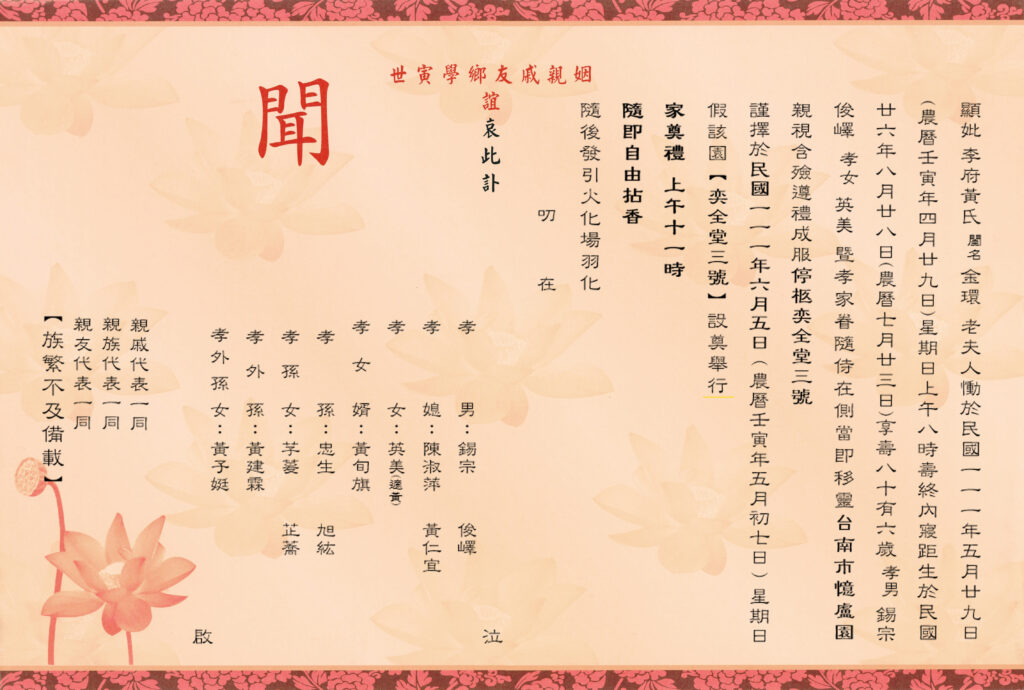 顯妣 李府黃氏 閨名 金環 老夫人慟於民國一一一年五月廿九日
(農曆壬寅年四月廿九日)星期日上午八時壽終內寢距生於民國
廿六年八月廿八日(農曆七月廿三日)享壽八十有六歲 孝男 錫宗
俊嶧 孝女 英美 暨孝家眷隨侍在側當即移靈台南市憶盧園
親視含殮遵禮成服停柩奕全堂三號
謹擇於民國一一一年六月五日(農曆壬寅年五月初七日)星期日
假該園【奕全堂三號】設奠舉行
家奠禮 上午十一時
隨即自由拈香
隨後發引火化場羽化
叨在
姻親戚友鄉學寅世
誼哀此訃
聞
孝男:錫宗 俊嶧
孝媳:陳淑萍 黃仁宜
孝女:英美(適黃)
孝女婿:黃旬旗
孝孫:忠生 旭紘
孝孫女:芓蔓 芷蕎
孝外孫:黃建霖
孝外孫女:黃予娗
泣
啟
親戚代表一同
親族代表一同
親友代表一同
【族繁不及備載】